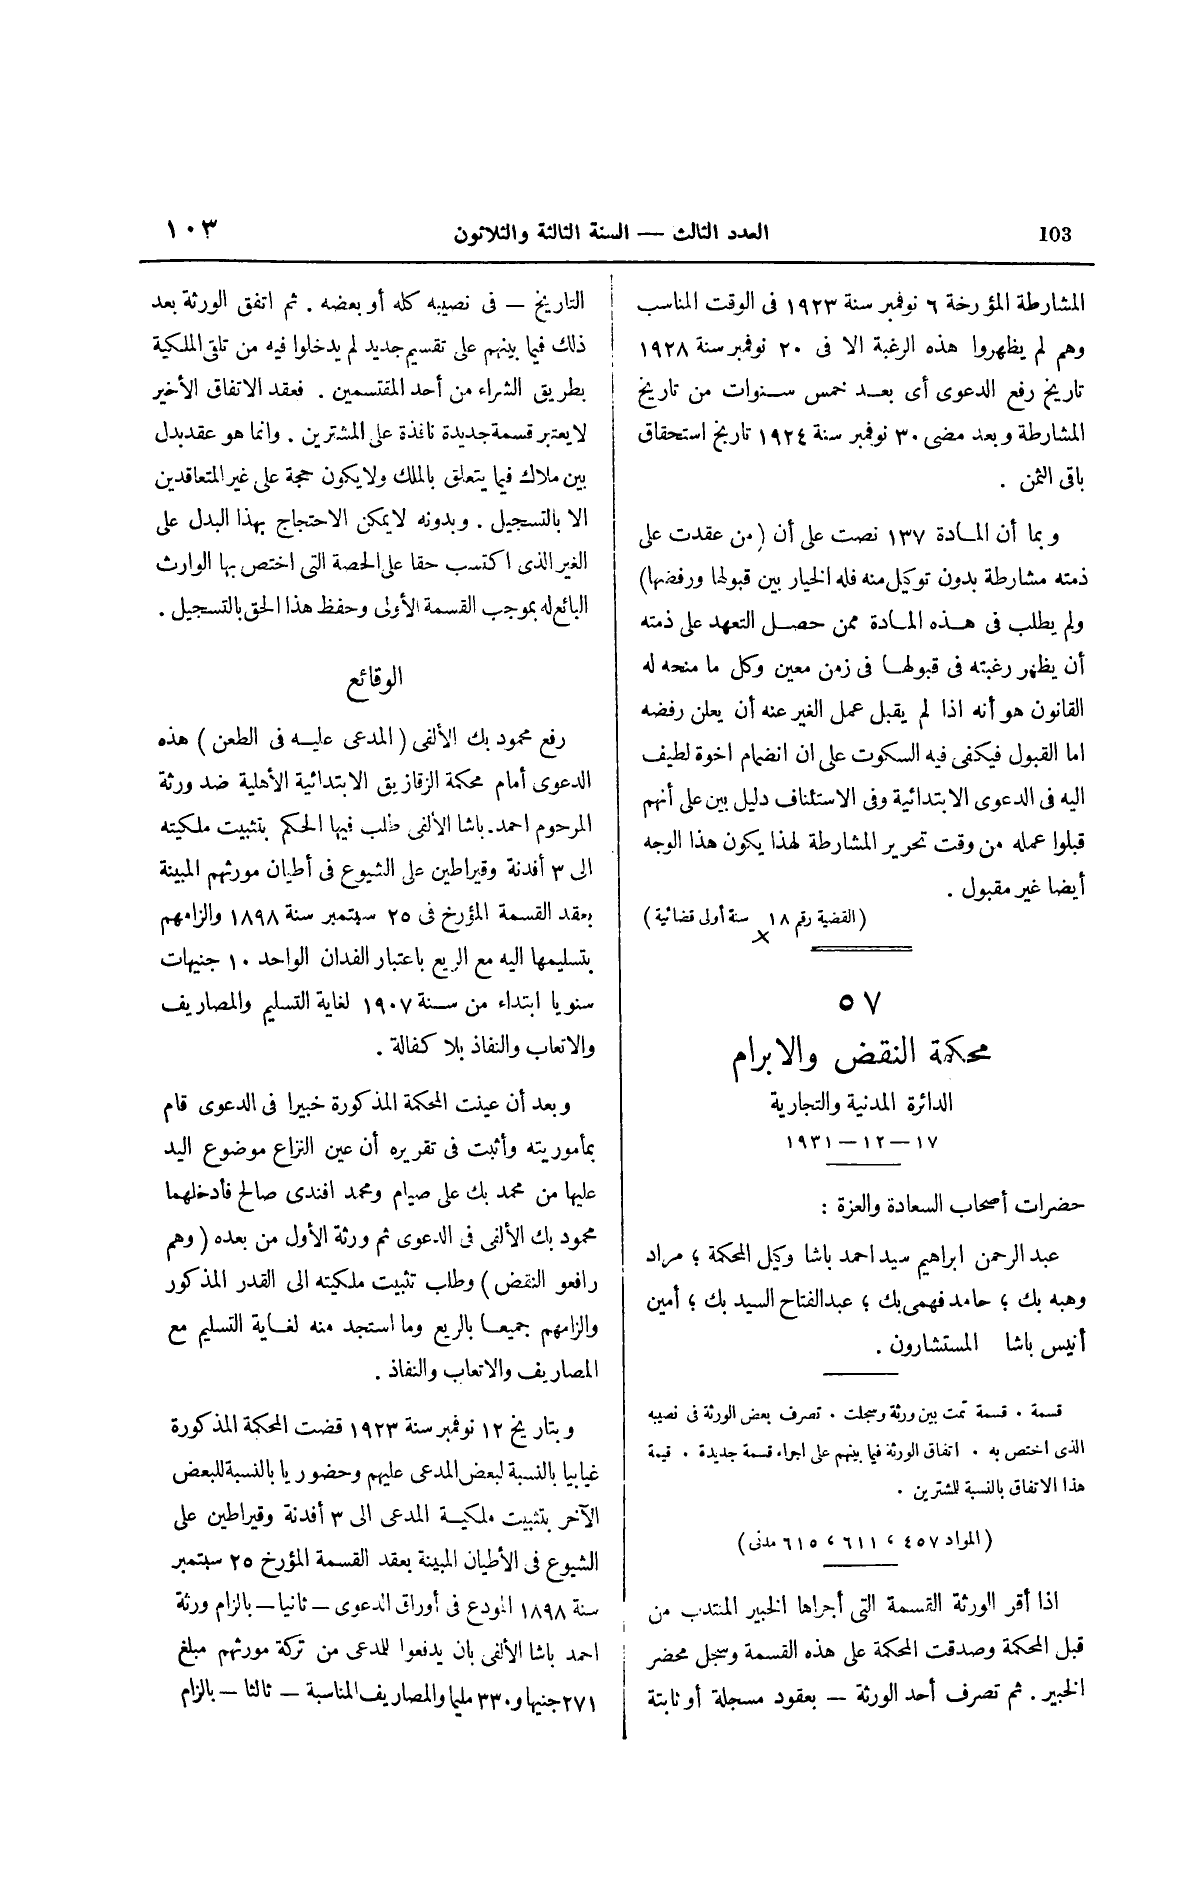 103
العدد الثالث — السنة الثالثة والثلاثون
١٠٣
المشارطة المؤرخة ٦ نوفمبر سنة ١٩٢٣ فى الوقت المناسب
وهم لم يظهروا هذه الرغبة الا فى ٢٠ نوفمبر سنة ١٩٢٨
تاريخ رفع الدعوى أى بعد خمس سنوات من تاريخ
المشارطة وبعد مضى ٣٠ نوفمبر سنة ١٩٢٤ تاريخ استحقاق
باقى الثمن .
وبما أن المادة ١٣٧ نصت على أن (من عقدت على
ذمته مشارطة بدون توكيل منه فله الخيار بين قبولها ورفضها)
ولم يطلب فى هذه المادة ممن حصل التعهد على ذمته
أن يظهر رغبته فى قبولها فى زمن معين وكل ما منحه له
القانون هو أنه اذا لم يقبل عمل الغير عنه أن يعلن رفضه
اما القبول فيكفى فيه السكوت على ان انضمام اخوة لطيف
اليه فى الدعوى الابتدائية وفى الاستئناف دليل بين على أنهم
قبلوا عمله من وقت تحرير المشارطة لهذا يكون هذا الوجه
أيضا غير مقبول .
(القضية رقم ١٨ سنة أولى قضائية)
٥٧
محكمة النقض والابرام
الدائرة المدنية والتجارية
١٧ – ١٢ – ١٩٣١
حضرات أصحاب السعادة والعزة :
عبد الرحمن ابراهيم سيد احمد باشا وكيل المحكمة ؛ مراد
وهبه بك ؛ حامد فهمى بك ؛ عبدالفتاح السيد بك ؛ أمين
أنيس باشا المستشارون .
قسمة . قسمة تمت بين ورثة وسجلت . تصرف بعض الورثة فى نصيبه
الذى اختص به . اتفاق الورثة فيما بينهم على اجراء قسمة جديدة . قيمة
هذا الاتفاق بالنسبة للمشترين .
(المواد ٤٥٧ ، ٦١١ ، ٦١٥ مدنى)
اذا أقر الورثة القسمة التى أجراها الخبير المنتدب من
قبل المحكمة وصدقت المحكمة على هذه القسمة وسجل محضر
الخبير . ثم تصرف أحد الورثة – بعقود مسجلة أو ثابتة
التاريخ – فى نصيبه كله أو بعضه . ثم اتفق الورثة بعد
ذلك فيما بينهم على تقسيم جديد لم يدخلوا فيه من تلقى الملكية
بطريق الشراء من أحد المقتسمين . فعقد الاتفاق الأخير
لايعتبر قسمة جديدة نافذة على المشترين . وانما هو عقد بدل
بين ملاك فيما يتعلق بالملك ولا يكون حجة على غير المتعاقدين
الا بالتسجيل . وبدونه لايمكن الاحتجاج بهذا البدل على
الغير الذى اكتسب حقا على الحصة التى اختص بها الوارث
البائع له بموجب القسمة الأولى وحفظ هذا الحق بالتسجيل .
الوقائع
رفع محمود بك الألفى (المدعى عليه فى الطعن) هذه
الدعوى أمام محكمة الزقازيق الابتدائية الأهلية ضد ورثة
المرحوم احمد باشا الألفى طلب فيها الحكم بتثبيت ملكيته
الى ٣ أفدنة وقيراطين على الشيوع فى أطيان مورثهم المبينة
بعقد القسمة المؤرخ فى ٢٥ سبتمبر سنة ١٨٩٨ والزامهم
بتسليمها اليه مع الريع باعتبار الفدان الواحد ١٠ جنيهات
سنويا ابتداء من سنة ١٩٠٧ لغاية التسليم والمصاريف
والاتعاب والنفاذ بلا كفالة .
وبعد أن عينت المحكمة المذكورة خبيرا فى الدعوى قام
بمأموريته وأثبت فى تقريره أن عين النزاع موضوع اليد
عليها من محمد بك على صيام ومحمد افندى صالح فأدخلهما
محمود بك الألفى فى الدعوى ثم ورثة الأول من بعده (وهم
رافعو النقض) وطلب تثبيت ملكيته الى القدر المذكور
والزامهم جميعا بالريع وما استجد منه لغاية التسليم مع
المصاريف والاتعاب والنفاذ .
وبتاريخ ١٢ نوفمبر سنة ١٩٢٣ قضت المحكمة المذكورة
غيابيا بالنسبة لبعض المدعى عليهم وحضوريا بالنسبة للبعض
الآخر بتثبيت ملكية المدعى الى ٣ أفدنة وقيراطين على
الشيوع فى الأطيان المبينة بعقد القسمة المؤرخ ٢٥ سبتمبر
سنة ١٨٩٨ المودع فى أوراق الدعوى – ثانيا – بالزام ورثة
احمد باشا الألفى بان يدفعوا للمدعى من تركة مورثهم مبلغ
٢٧١ جنيها و٣٣٠ مليما والمصاريف المناسبة – ثالثا – بالزام